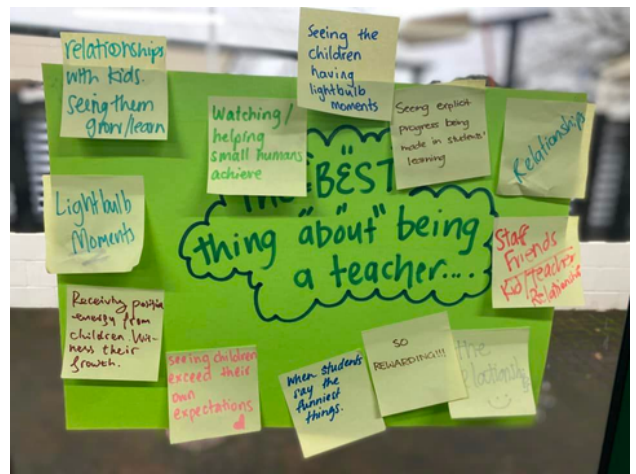 relationships
with kids.
seeing them
grow/learn
Seeing the
children
having
lightbulb
moments
Watching/
helping
small humans
achieve
Seeing explicit
progress being
made in students'
learning
Relationships
The "BEST"
thing "about" being
a teacher....
Lightbulb
Moments
Staff
Friends
Kid/Teacher
Relationships
Receiving positive
energy from
children. Wit-
ness their
growth.
seeing children
exceed their
own
expectations
when students
say the
funniest
things.
SO
REWARDING!!!
the
relationships